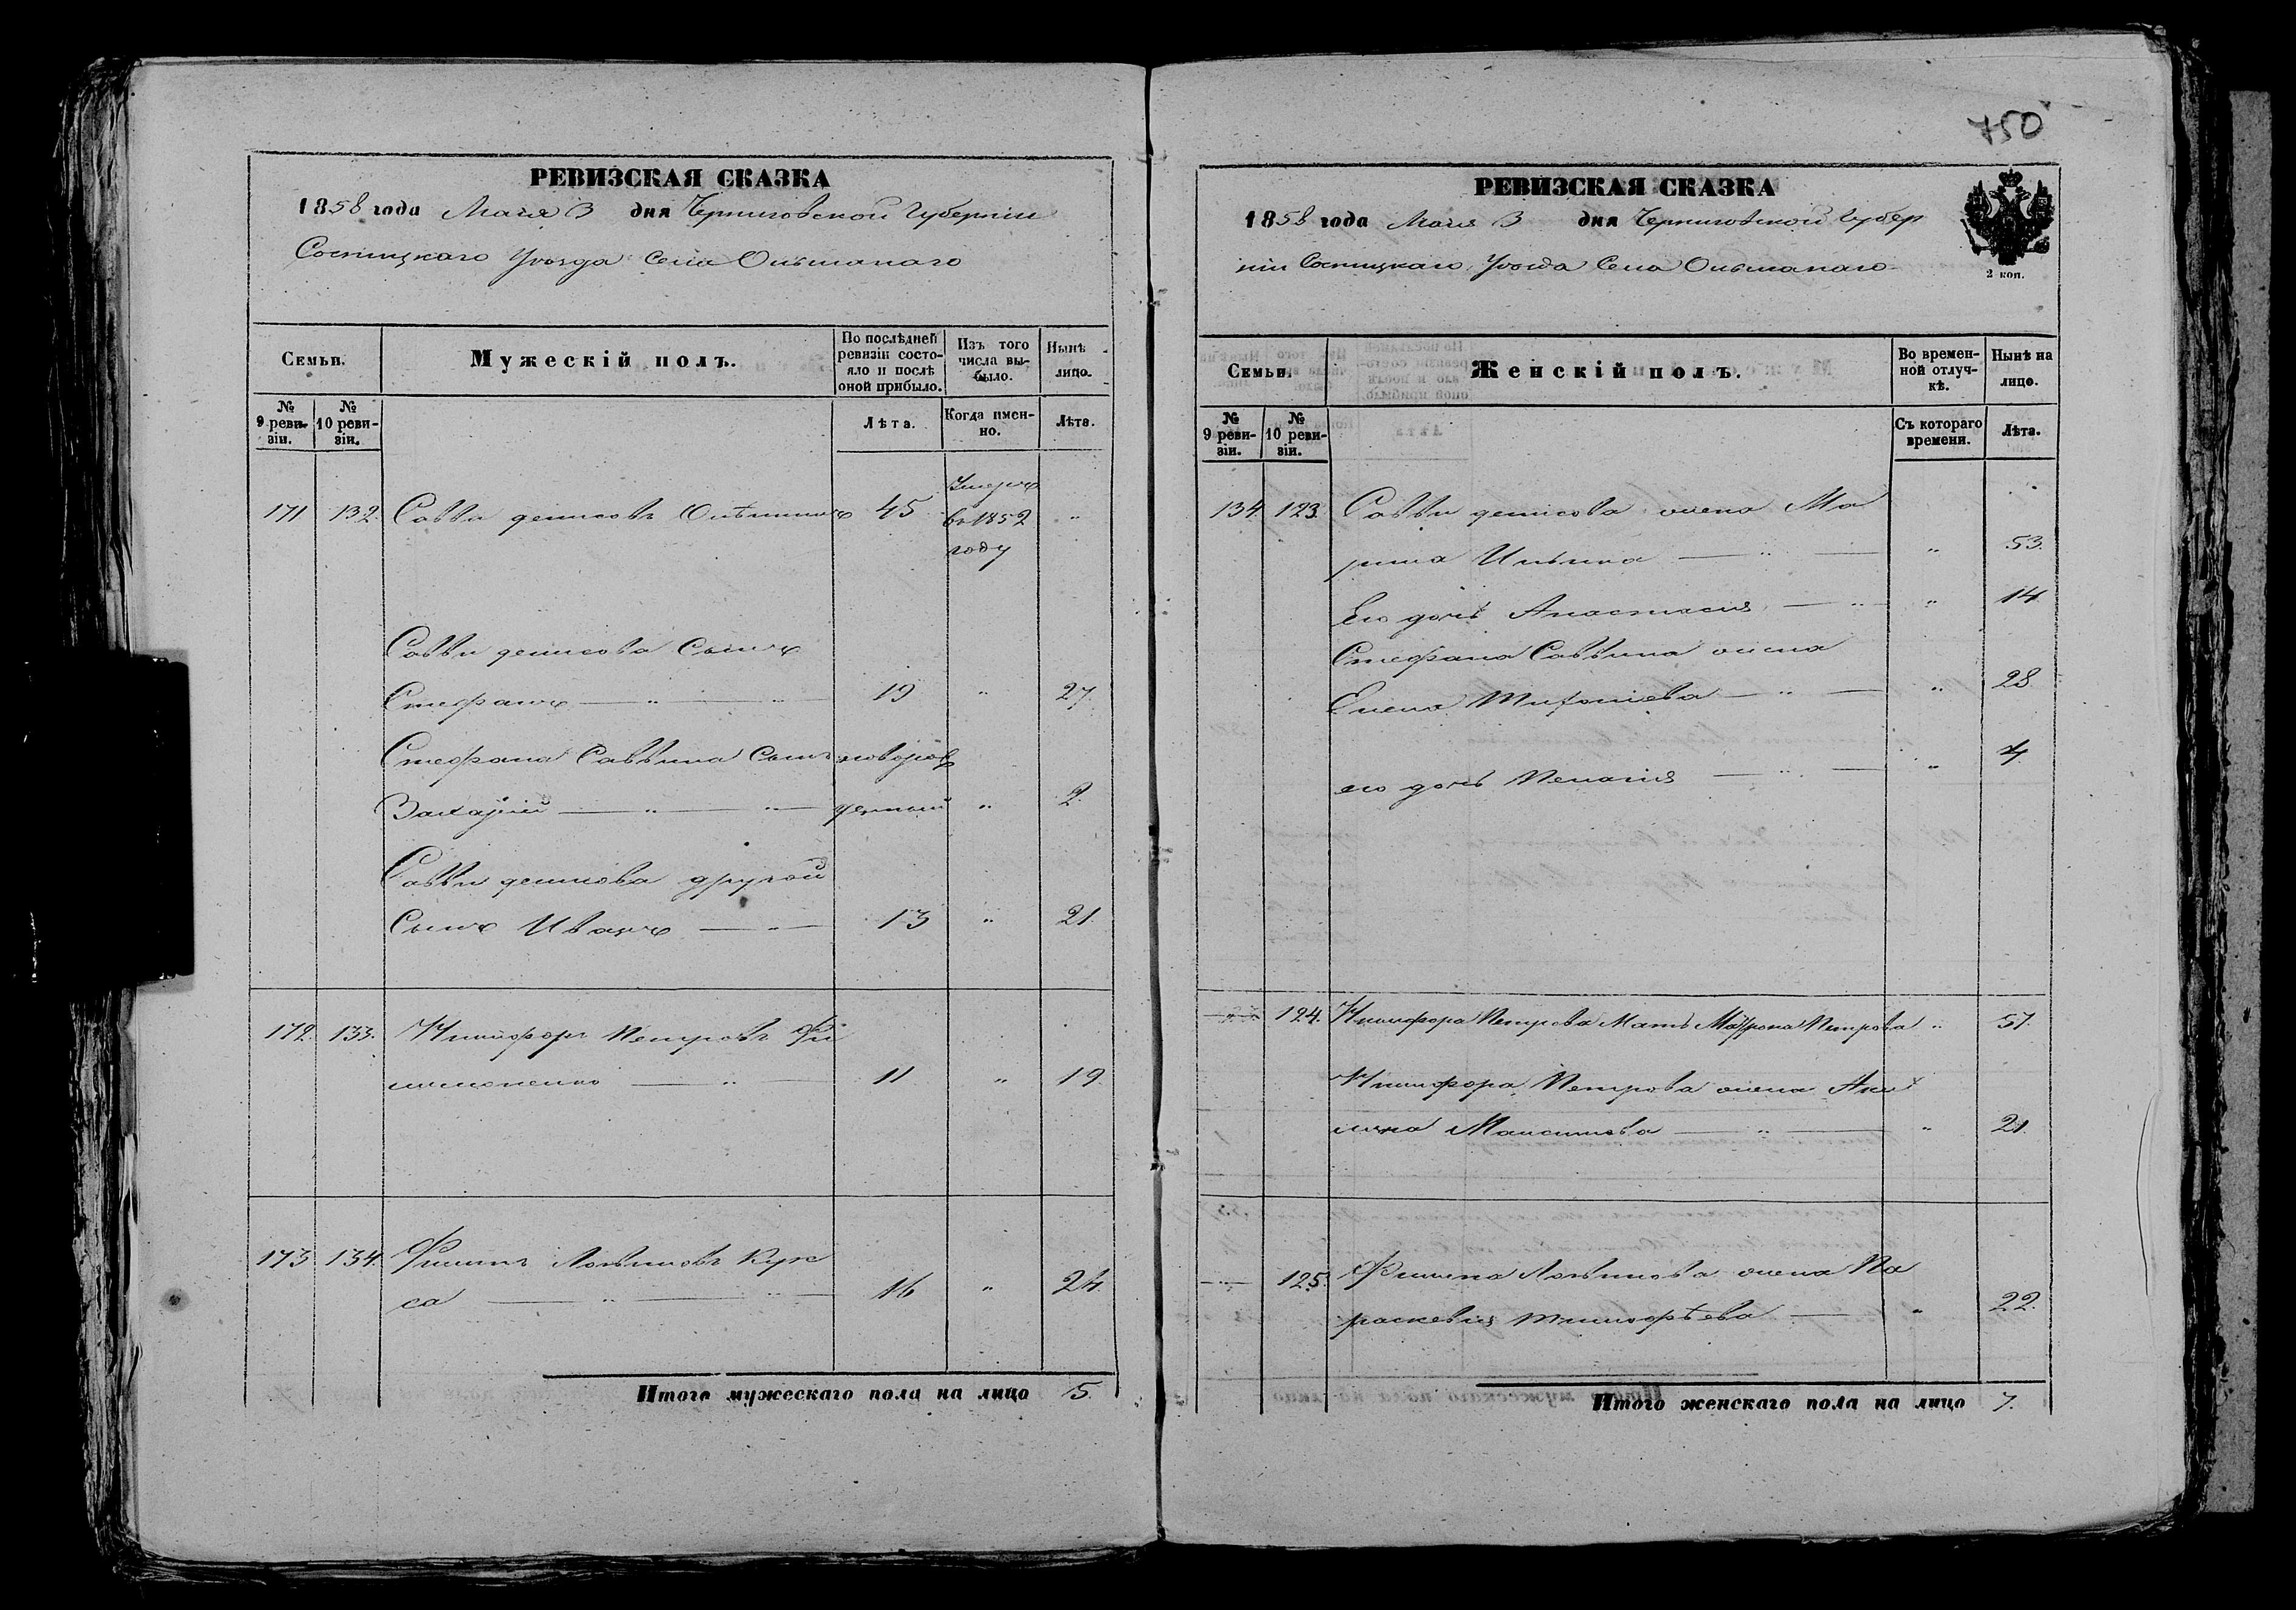 750
РЕВИЗСКАЯ СКАЗКА
1858 года Маія 3 дня Черниговской Губерніи
Сосницкаго Уѣзда Села Ольшанаго
Семьи.
Мужескій полъ.
По послѣдней ревизіи состояло и послѣ оной прибыло.
Изъ того числа выбыло.
Нынѣ на лицо.
№ 9 ревизіи.
№ 10 ревизіи.
Лѣта.
Когда именно.
Лѣта.
171 132. Саввы денисовъ 45 Умеръ
в 1852 "
году
Саввы денисова Сынъ
Стефанъ — " — " — 19 " 27.
Стефана Саввина Сынъ новорож
Захарій — " — " — денный " 2.
Саввы денисова другой
Сынъ Иванъ — " — 13 " 21.
172. 133. Никифоръ Петровъ Фи
лимоненко — " — 11 " 19.
173 134. Филипъ Логвиновъ
са — " — " — 16 " 24.
Итого мужескаго пола на лицо 5.
РЕВИЗСКАЯ СКАЗКА
1858 года Маія 3 дня Черниговской Губер
ніи Сосницкаго Уѣзда Села Ольшанаго
2 коп.
Семьи.
Женскій полъ.
Во временной отлучкѣ.
Нынѣ на лицо.
№ 9 ревизіи.
№ 10 ревизіи.
Съ котораго времени.
Лѣта.
134. 123. Саввы денисова жена Ма
рина Ильина — " — " 53.
Его дочь Анастасія — " — " 14.
Стефана Саввина жена
Елена — " — " 28.
его дочь Пелагія — " — " 4.
— " — 124. Никифора Петрова Мать Матрона Петрова " 51.
Никифора Петрова жена Аку
лина Максимова — " — " 21.
— " — 125. Филипа Логвинова жена Па
раскевія — " 22.
Итого женскаго пола на лицо 7.